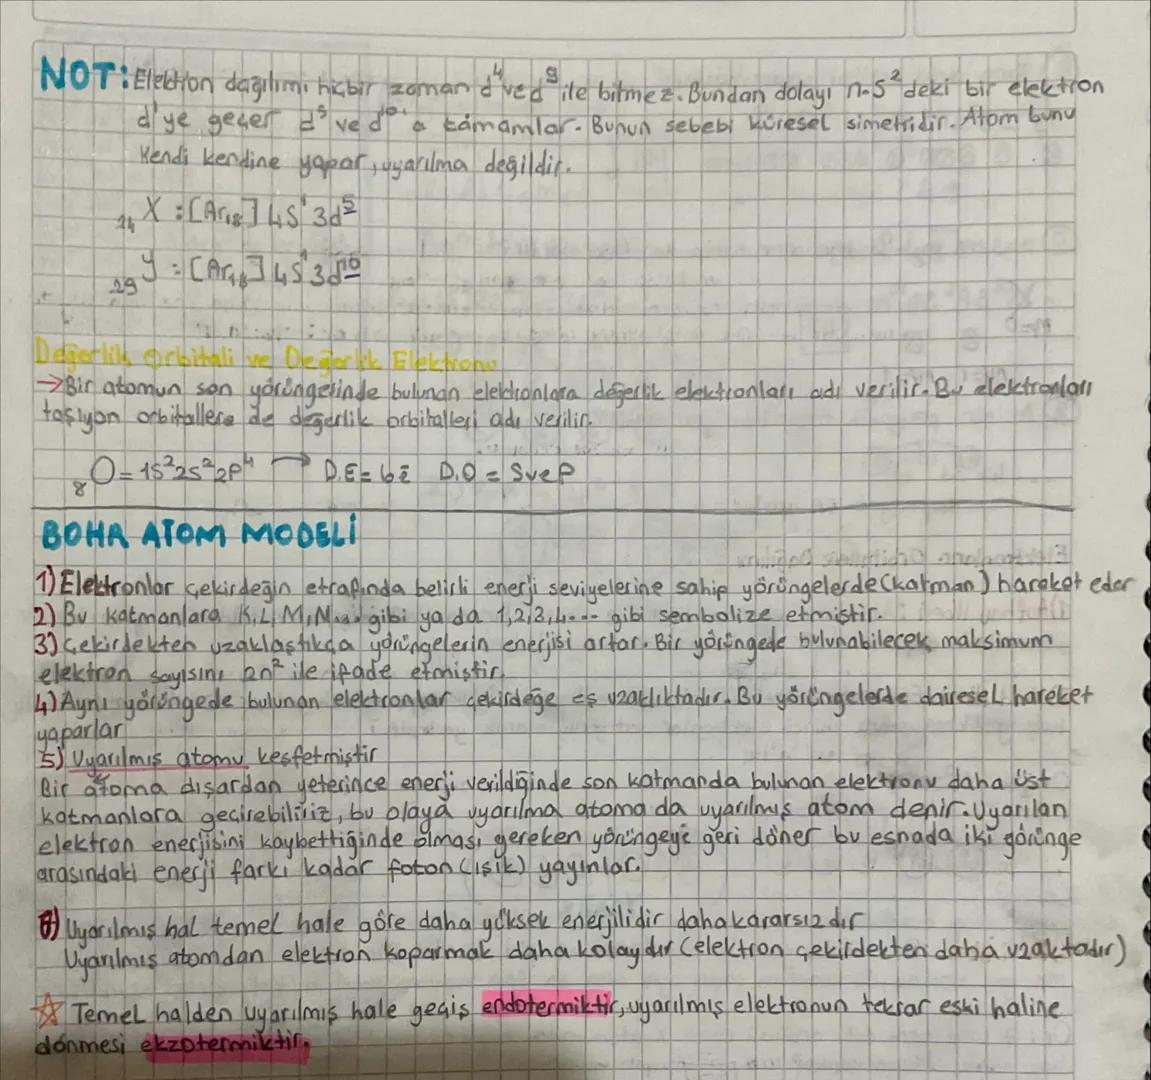 NOT: Elektron dağılımı hiçbir zaman d⁴ ve d⁹ ile bitmez. Bundan dolayı n-s² deki bir elektron
d'ye geçer d⁵ ve d¹⁰'a tamamlar. Bunun sebebi küresel simetridir. Atom bunu
kendi kendine yapar, uyarılma değildir.
₂₄X : [Ar₁₈] 4s¹ 3d⁵
₂₉Y : [Ar₁₈] 4s¹ 3d¹⁰
Değerlik Orbitali ve Değerlik Elektronu
→Bir atomun son yörüngesinde bulunan elektronlara değerlik elektronları adı verilir. Bu elektronları
taşıyan orbitallere de değerlik orbitalleri adı verilir.
₈O = 1s² 2s² 2p⁴ → D.E = 6ē D.O = s ve p
BOHR ATOM MODELİ
1) Elektronlar çekirdeğin etrafında belirli enerji seviyelerine sahip yörüngelerde (katman) hareket eder
2) Bu katmanlara K, L, M, N... gibi ya da 1,2,3,4.... gibi sembolize etmiştir.
3) Çekirdekten uzaklaştıkça yörüngelerin enerjisi artar. Bir yörüngede bulunabilecek maksimum
elektron sayısını 2n² ile ifade etmiştir.
4) Aynı yörüngede bulunan elektronlar çekirdeğe eş uzaklıktadır. Bu yörüngelerde dairesel hareket
yaparlar
5) Uyarılmış atomu keşfetmiştir
Bir atoma dışardan yeterince enerji verildğinde son katmanda bulunan elektronu daha üst
katmanlara geçirebiliriz, bu olaya uyarılma atoma da uyarılmış atom denir. Uyarılan
elektron enerjisini kaybettiğinde olması gereken yörüngeye geri döner bu esnada iki görünge
arasındaki enerji farkı kadar foton (ışık) yayınlar.
6) Uyarılmış hal temel hale göre daha yüksek enerjilidir daha kararsızdır
Uyarılmış atomdan elektron koparmak daha kolaydır (elektron çekirdekten daha uzaktadır)
☆ Temel halden uyarılmış hale geçiş endotermiktir, uyarılmış elektronun tekrar eski haline
dönmesi ekzotermiktir.